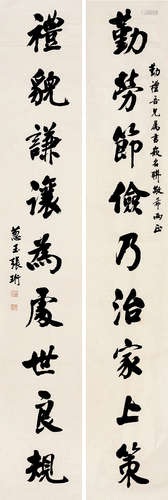 勤勞節儉乃治家上策
勤禮吾兄屬書教名聯敬希兩正
禮貌謙讓為處世良規
蔥玉張珩